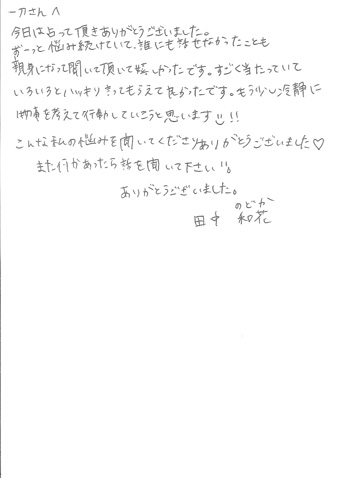 一刀さんへ
今日は占って頂きありがとうございました。
ずーっと悩み続けていて、誰にも話せなかったことも
親身になって聞いて頂いて嬉しかったです。すごく当たっていて
いろいろとハッキリ言ってもらえて良かったです。もう少し冷静に
物事を考えて行動していこうと思います!!
こんな私の悩みを聞いてくださりありがとうございました♡
また何かあったら話を聞いて下さい。
ありがとうございました。
のどか
田中 和花